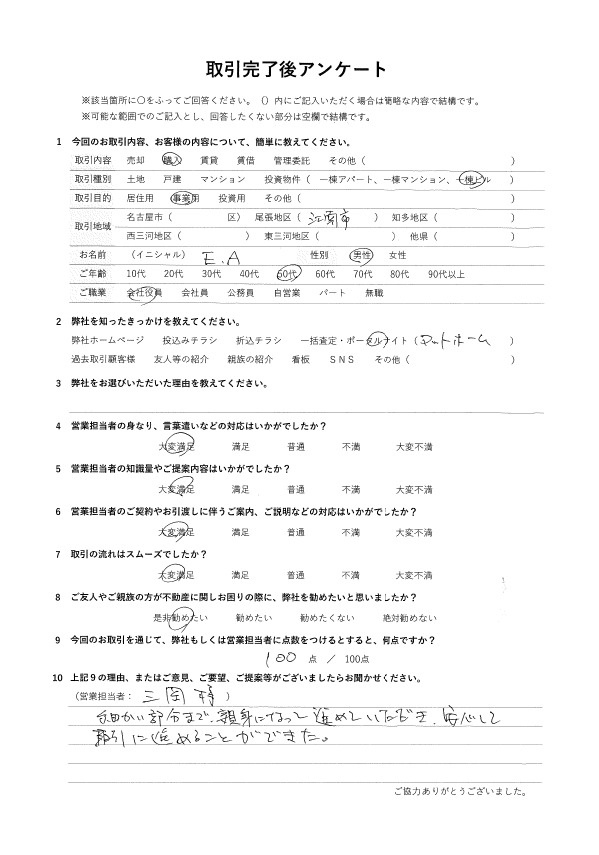 取引完了後アンケート
※該当箇所に〇をふってご回答ください。（）内にご記入いただく場合は簡略な内容で結構です。
※可能な範囲でのご記入とし、回答したくない部分は空欄で結構です。
1 今回のお取引内容、お客様の内容について、簡単に教えてください。
取引内容 売却 購入 賃貸 賃借 管理委託 その他（ ）
取引種別 土地 戸建 マンション 投資物件（ 一棟アパート、一棟マンション、一棟ビル ）
取引目的 居住用 事業用 投資用 その他（ ）
取引地域 名古屋市（ 区） 尾張地区（ 江南市 ） 知多地区（ ）
西三河地区（ ） 東三河地区（ ） 他県（ ）
お名前 （イニシャル） E.A 性別 男性 女性
ご年齢 10代 20代 30代 40代 50代 60代 70代 80代 90代以上
ご職業 会社役員 会社員 公務員 自営業 パート 無職
2 弊社を知ったきっかけを教えてください。
弊社ホームページ 投込みチラシ 折込チラシ 一括査定・ポータルサイト（ アットホーム ）
過去取引顧客様 友人等の紹介 親族の紹介 看板 ＳＮＳ その他（ ）
3 弊社をお選びいただいた理由を教えてください。
4 営業担当者の身なり、言葉遣いなどの対応はいかがでしたか？
大変満足 満足 普通 不満 大変不満
5 営業担当者の知識量やご提案内容はいかがでしたか？
大変満足 満足 普通 不満 大変不満
6 営業担当者のご契約やお引渡しに伴うご案内、ご説明などの対応はいかがでしたか？
大変満足 満足 普通 不満 大変不満
7 取引の流れはスムーズでしたか？
大変満足 満足 普通 不満 大変不満
8 ご友人やご親族の方が不動産に関しお困りの際に、弊社を勧めたいと思いましたか？
是非勧めたい 勧めたい 勧めたくない 絶対勧めない
9 今回のお取引を通じて、弊社もしくは営業担当者に点数をつけるとすると、何点ですか？
100 点 ／ 100点
10 上記９の理由、またはご意見、ご要望、ご提案等がございましたらお聞かせください。
（営業担当者： 三岡 様 ）
細かい部分まで、親身になって進めていただき、安心して
取引に進めることができた。
ご協力ありがとうございました。